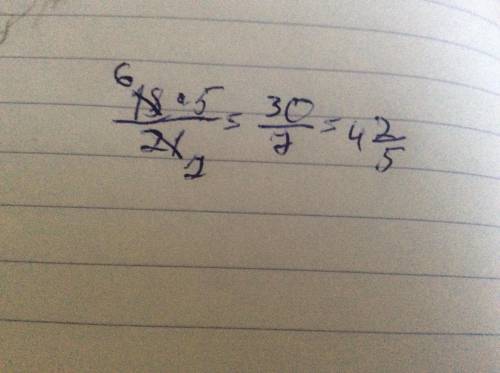 6
18 · 5 / 21 7 = 30/7 = 4 2/5